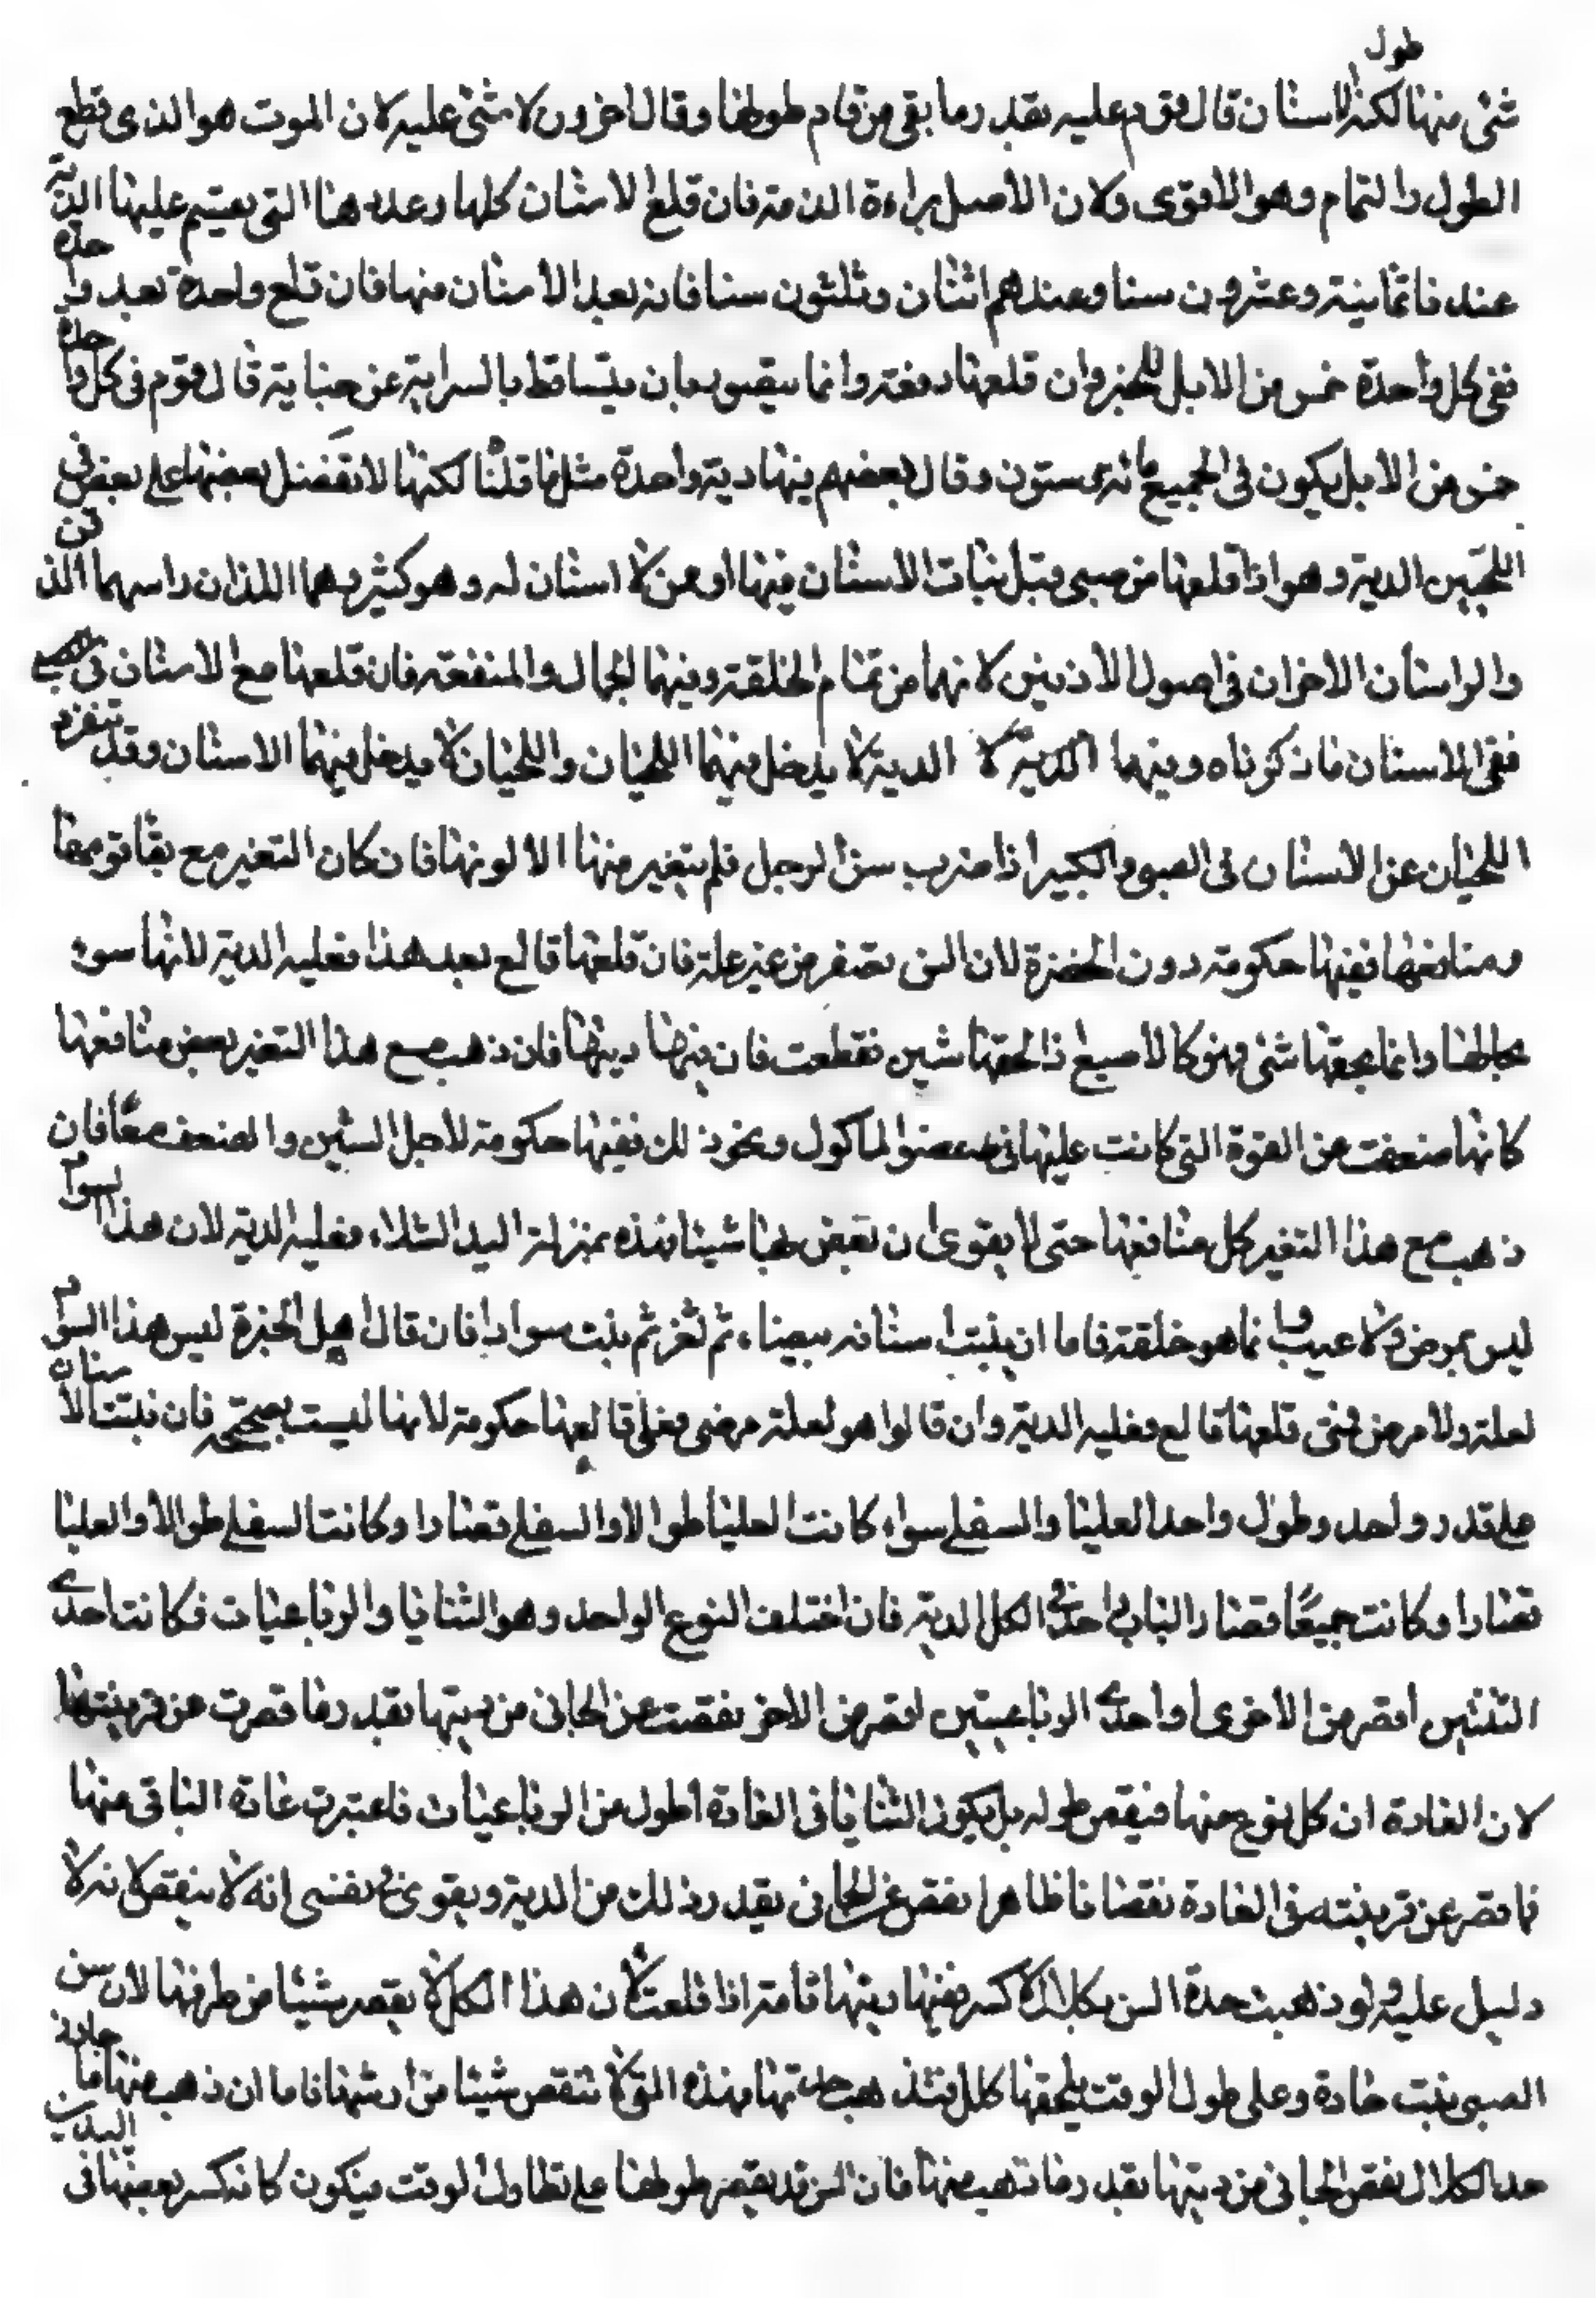 طول
شئ منها لكن الاسنان قال قوم عليه بقدر ما بقى من تمام طولها وقال آخرون لا شئ عليه لان الموت هو الذى قطع
الطول والتمام وهو الاقوى ولان الاصل براءة الذمة فان قلع الاسنان كلها وعددها التى يقسم عليها الدية
عندنا ثمانية وعشرون سنا وعندهم اثنان وثلثون سنا فانه بعد الاسنان منها فان قلع واحدة بعد واحدة
ففى كل واحدة خمس من الابل للخبر وان قلعها دفعة وانما يتصور بان يتساقط بالسراية عن جناية قال قوم فى كل واحدة
خمس من الابل يكون فى الجميع مائة وستون وقال بعضهم فيها دية واحدة مثل ما قلنا لكنها لا تفضل بعضها على بعض فى
اللحيين الدية وهو اذا قلعها من صبى قبل نبات الاسنان فيها او من لا اسنان له وهو كبير وهما اللذان راسهما الذقن
والراسان الاخران فى اصول الاذنين لانهما من تمام الخلقة وفيها الجمال والمنفعة فان قلعها مع الاسنان
ففى الاسنان ما ذكرناه وفيهما الدية لا الدية لا يدخل فيهما اللحيان واللحيان لا يدخل فيهما الاسنان وقد تنفرد
اللحيان عن الاسنان فى الصبى والكبير اذا ضرب سن الرجل فلم يتغير منها الا لونها فان كان التغير مع بقا قوتها
ومنافعها ففيها حكومة دون الخضرة لان السن تصفر من غير علة فان قلعها قالع بعد هذا فعليه الدية لانها سن
بحالها وانما لحقها شئ فهو كالاصبع اذا لحقها شين فقطعت فان فيها ديتها فان ذهب مع هذا التغير بعض منافعها
كانها ضعفت عن القوة التى كانت عليها فى عض الماكول ونحو ذلك ففيها حكومة لاجل الشين والضعف معًا فان
ذهب مع هذا التغير كل منافعها حتى لا يقوى ان يعض بها شيئا فهذه بمنزلة اليد الشلاء فعليه الدية لان هذا السواد
ليس بمرض ولا عيب وانما هو خلقة فاما ان ينبت اسنانه بيضاء ثم ثغر ثم نبت سوادا فان قال اهل الخبرة ليس هذا السواد
لعلة ولا مرض فمتى قلعها قالع فعليه الدية وان قالوا هو لعلة مرض فعلى قالعها حكومة لانها ليست بصحيحة فان نبتت الاسنان
على قدر واحد وطول واحد العليا والسفلى سواء كانت العليا طوالا والسفلى قصارا وكانت السفلى طوالا والعليا
قصارا وكانت جميعًا قصارا الباب واحد فى الكل الدية فان اختلف النوع الواحد وهو الثنايا والرباعيات فكانت احدى
الثنيتين اقصر من الاخرى او احدى الرباعيتين اقصر من الاخر نقصت عن الجانى من ديتها بقدر ما قصرت عن قرينتها
لان العادة ان كل نوع منها فيقص طوله بل يكون الثنايا فى العادة اطول من الرباعيات فاعتبرت عادة الباقى منها
فما قصر عن قرينته فى العادة نقصانا ظاهرا نقص عن الجانى بقدر ذلك من الدية ويقوى فى نفسى انه لا ينقص لانه لا
دليل عليه ولو ذهبت حدة السن بكلال لا كسر ففيها ديتها تامة اذا قلعت لان هذا الكل لا يقصر شيئا من طرفها لان سن
الصبى نبت حادة وعلى طول الوقت يلحقها كلال فتذهب حدتها فهذه القلة لا تنقص شيئا من ارشها فاما ان ذهب منها ما جاوز
حد الكلال نقص الجانى من ديتها بقدر ما ذهب منها فان السن قد يقصر طولها على تطاول الوقت فيكون كانه كسر بعضها فى البدن